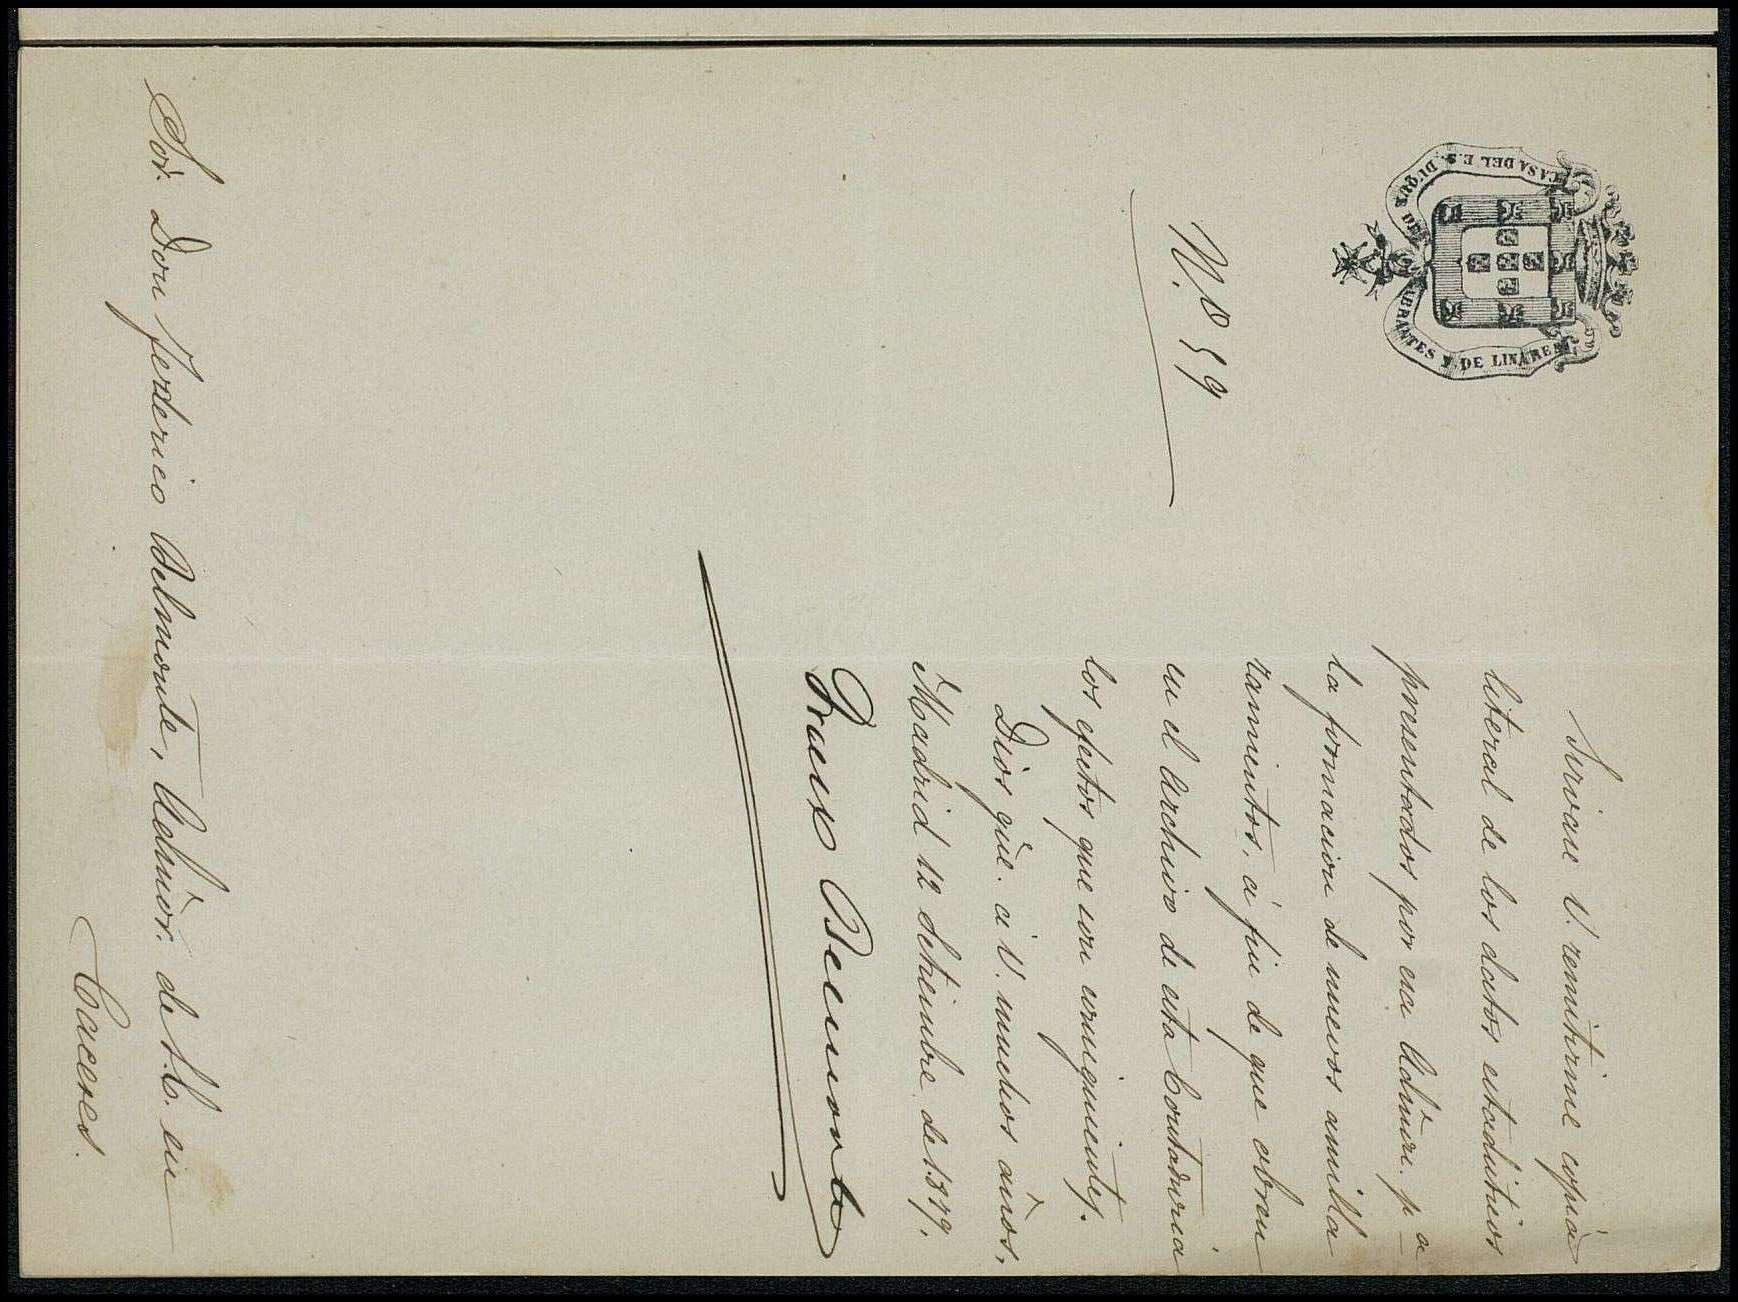 CASA DEL E. S. DUQUE DE ABRANTES Y DE LINARES
N.º 59
Sirvase V. remitirme copia
literal de los datos estadisticos
presentados por esa Admon. pª
la formacion de nuevos amilla
ramientos, á fin de que obren
en el archivo de esta Contaduria
los efectos que son consiguientes.
Dios gũe. á V. muchos años.
Madrid 12 Setiembre de 1879.
Franco
Sor. Don Federico Belmonte, Admor. de S.E. en
Caceres.